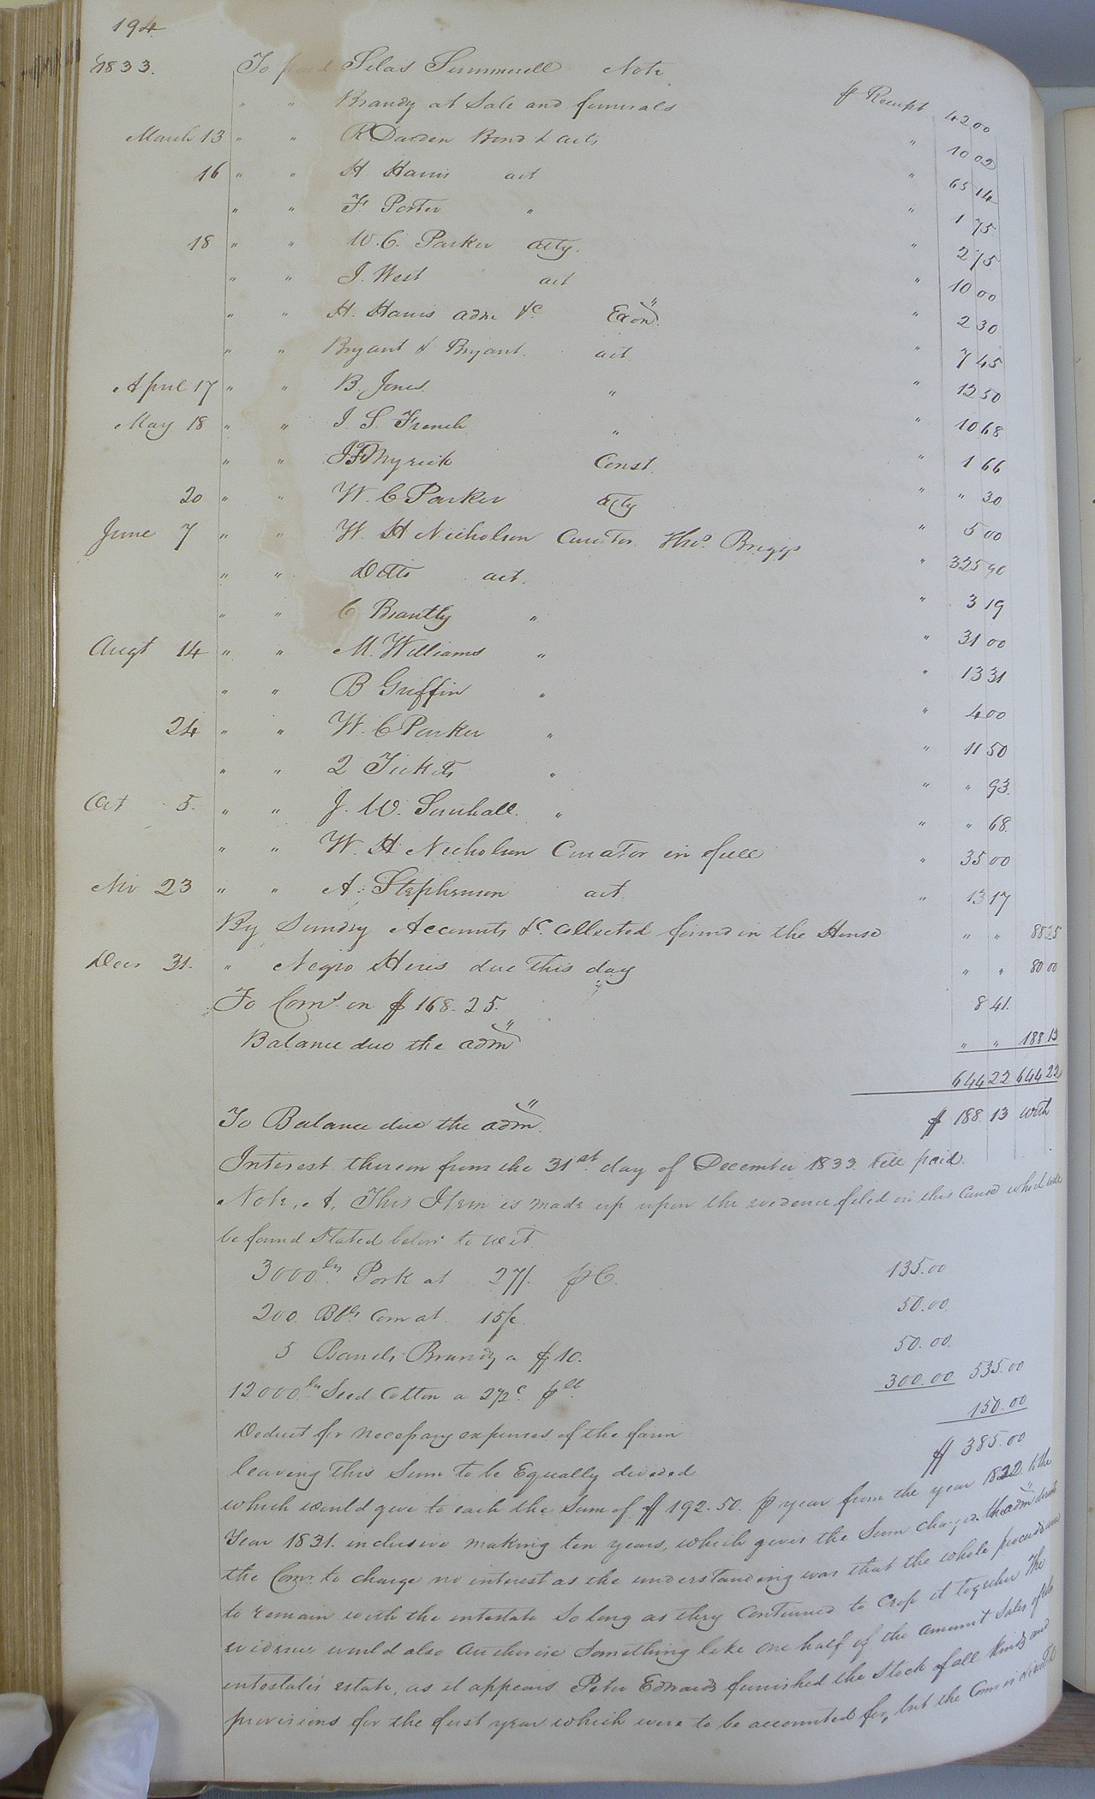 194
1833. To paid Silas Summerell Note ⅌ Receipt 42 00
" " Brandy at Sale and funerals " 10 02
March 13 " " R Darden Bond & acts " 65 14
16 " " H Harris act " 1 75
" " F Porter " " 2 75
18 " " W. C. Parker atty. " 10 00
" " J. West act " 2 30
" " H. Harris adm &c Exon. " 7 45
" " Bryant & Bryant. act " 12 50
April 17 " " B. Jones " " 10 68
May 18 " " J. S. French " " 1 66
" " Myrick Const. " " 30
20 " " W. C Parker atty " 5 00
June 7 " " W. H Nicholson Curator Thos. Briggs " 325 90
" " Ditto act. " 3 19
" " C Brantly " " 31 00
Augt 14 " " M. Williams " " 13 31
" " B Griffin " " 4 00
24 " " W. C Parker " " 11 50
" " 2 Tickets " " " 93.
Oct 5. " " J. W. " " " 68
" " W. H Nicholson Curator in full " 35 00
Nov 23 " " A. Stephenson act " 13 17
By Sundry Accounts &c. Collected found in the House " " 88 25
Decr 31. " Negro Hires due this day " " 80 00
To Coms on $168.25. 8 41.
Balance due the adm " " 188 13
644 22 644 22
To Balance due the adm. $188 13 with
Interest thereon from the 31st day of December 1833 till paid.
Note. A. This Item is made up upon the evidence filed in this Cause which will
be found Stated below to wit
3000 lbs Pork at 27/. ⅌ C. 135.00
200 Bls Corn at 15/ 50.00
5 Barrels Brandy a $10. 50.00
12000 lbs Seed Cotton a 2 1/2 c. ⅌ lb 300.00 535.00
Deduct for necessary expenses of the farm 150.00
leaving this Sum to be Equally divided $385.00
which would give to each the Sum of $192.50 ⅌ year from the year 1822 to the
Year 1831. inclusive making ten years, which gives the Sum charged the adm
the Comr. to charge no interest as the understanding was that the whole proceeds were
to remain with the intestate So long as they Continued to Crop it together The
evidence would also authorise Something like one half of the amount Sales of the
intestate's estate, as it appears Peter Edwards furnished the Stock of all kinds and
provisions for the first year which were to be accounted for, but the Comr is